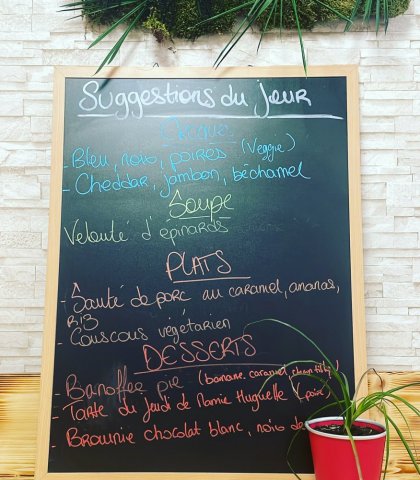 Suggestions du jour
Croque
- Bleu, noix, poires (Veggie)
- Cheddar, jambon, béchamel
Soupe
Velouté d'épinards
PLATS
- Sauté de porc au caramel, ananas,
riz
- Couscous végétarien
DESSERTS
- Banoffee pie (banane, caramel, chantilly)
- Tarte du jeudi de Mamie Huguette (poire)
- Brownie chocolat blanc, noix de